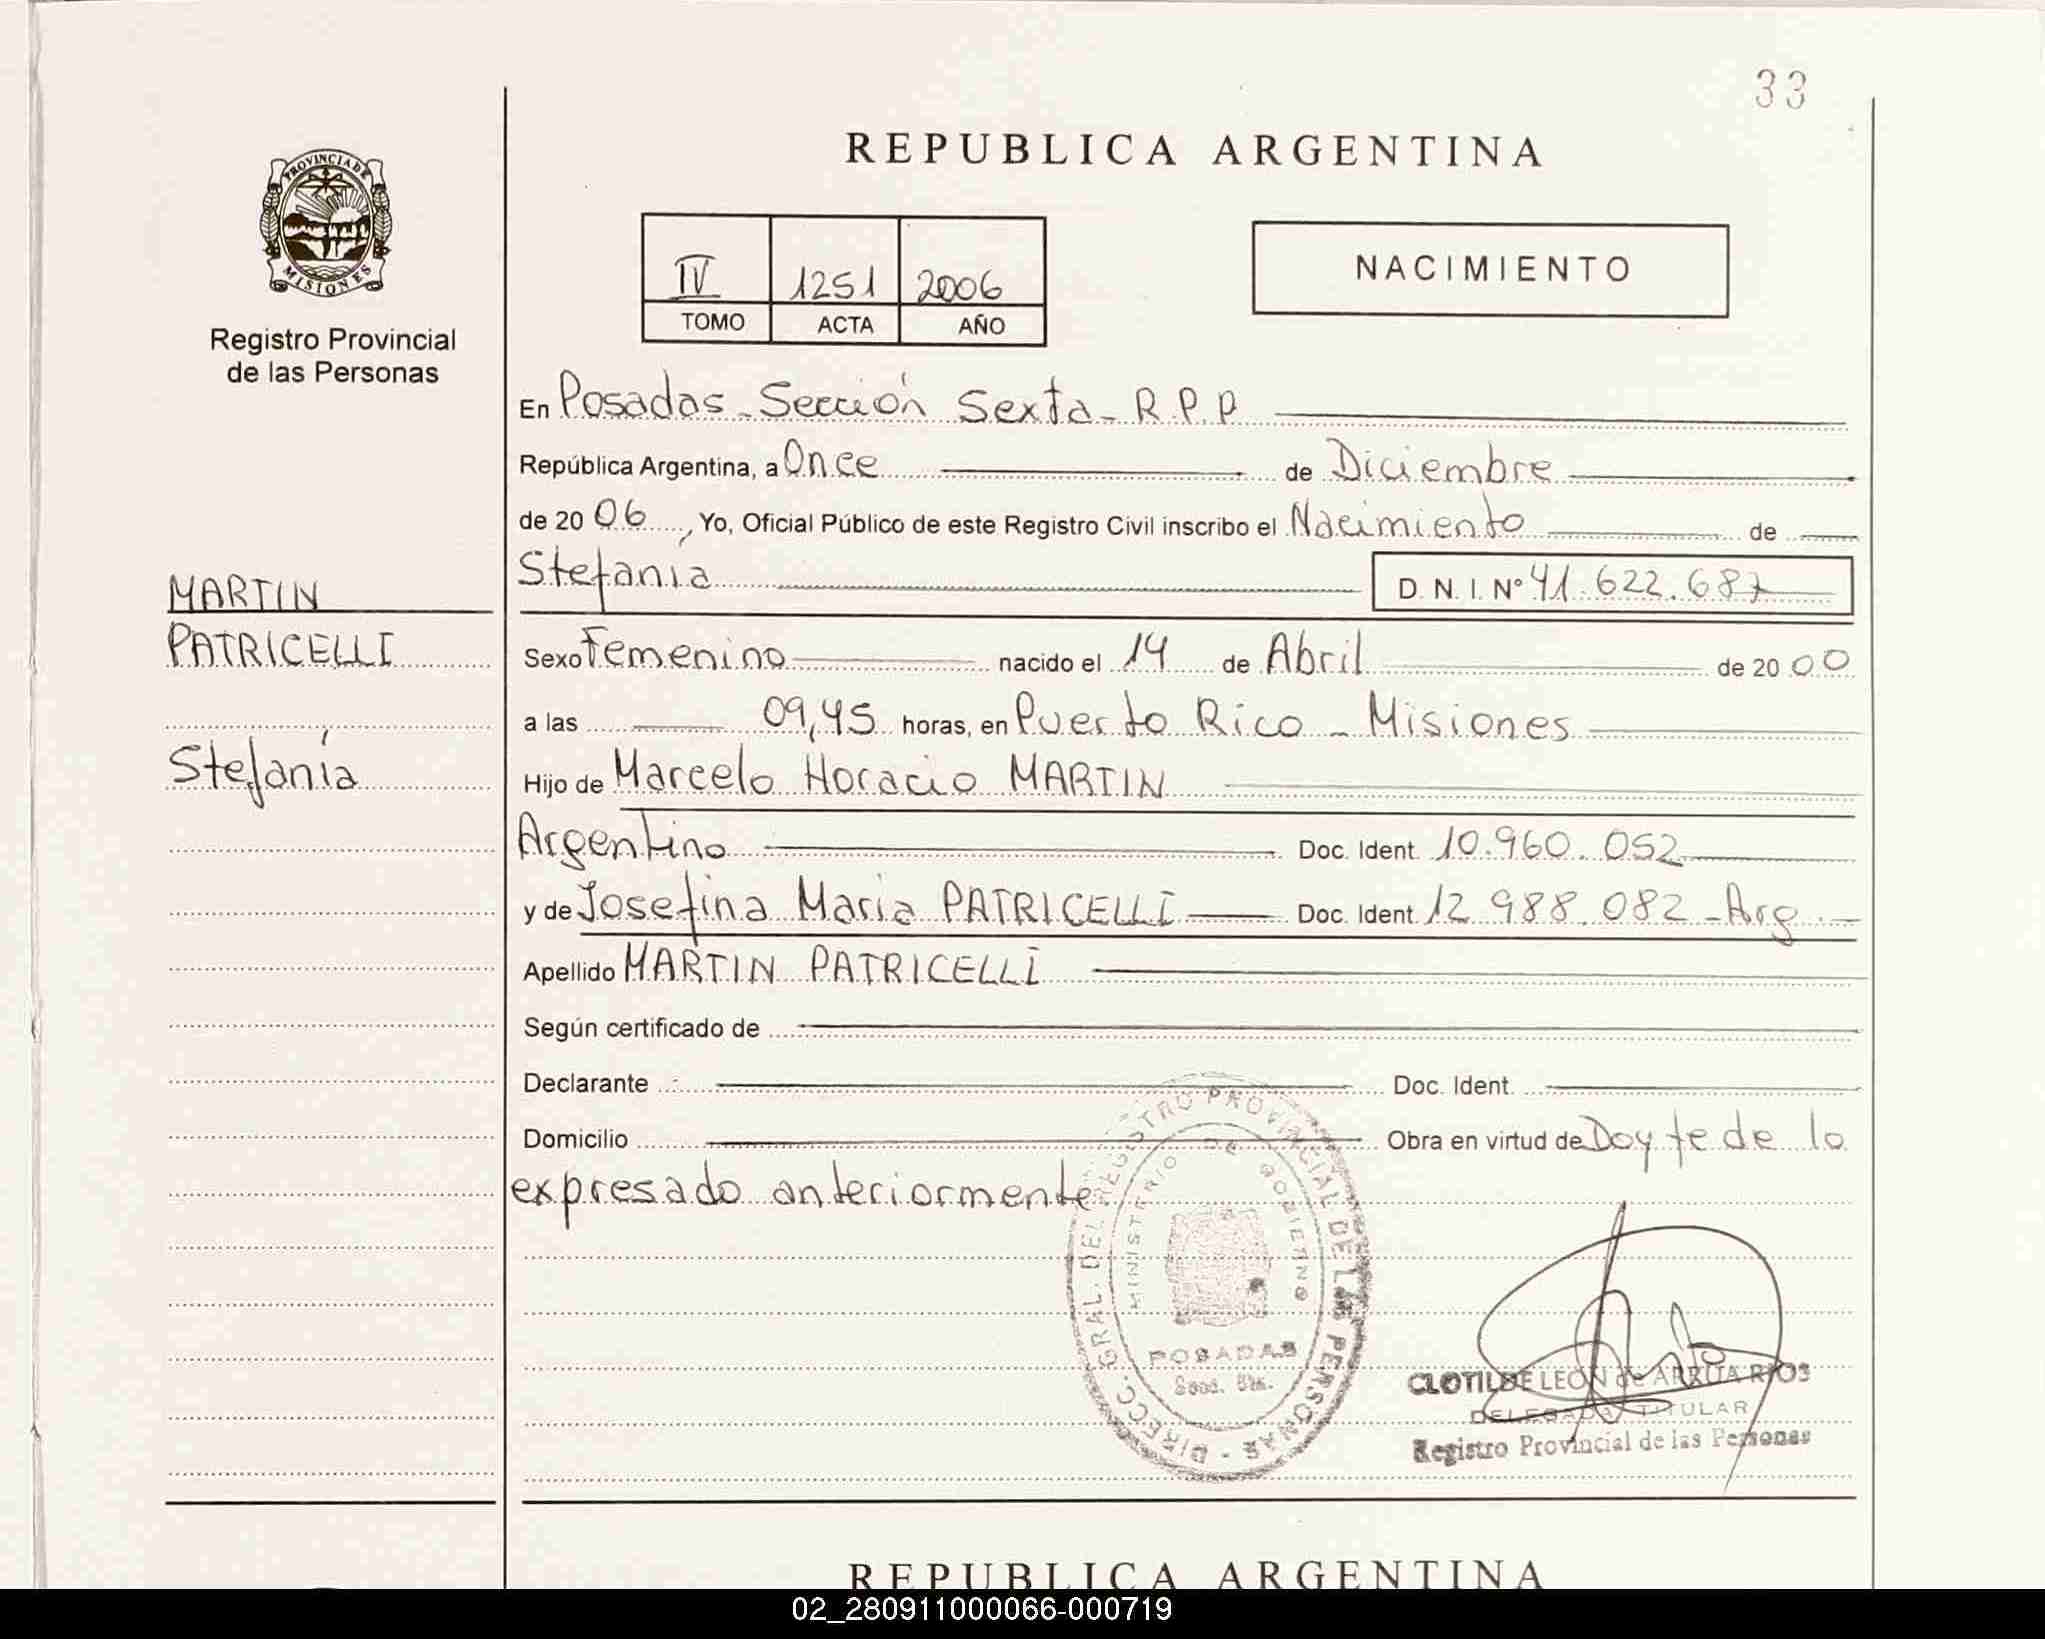 33
PROVINCIA DE
MISIONES
Registro Provincial
de las Personas
REPUBLICA ARGENTINA
IV 1251 2006
TOMO ACTA AÑO
NACIMIENTO
En Posadas - Sección Sexta - R.P.P
República Argentina, a Once de Diciembre
de 20 06, Yo, Oficial Público de este Registro Civil inscribo el Nacimiento de
Stefanía
D. N. I. Nº 41.622.687
MARTIN
PATRICELLI
Stefanía
Sexo Femenino nacido el 14 de Abril de 20 00
a las 09,45 horas, en Puerto Rico - Misiones
Hijo de Marcelo Horacio MARTIN
Argentino Doc. Ident. 10.960.052
y de Josefina Maria PATRICELLI Doc. Ident. 12.988.082 - Arg.
Apellido MARTIN PATRICELLI
Según certificado de
Declarante Doc. Ident.
Domicilio Obra en virtud de Doy fe de lo
expresado anteriormente
DIRECC. GRAL. DEL REGISTRO PROVINCIAL DE LAS PERSONAS
MINISTERIO DE GOBIERNO
POSADAS
CLOTILDE LEON de ARRUA RIOS
DELEGADA TITULAR
Registro Provincial de las Personas
REPUBLICA ARGENTINA
02_280911000066-000719